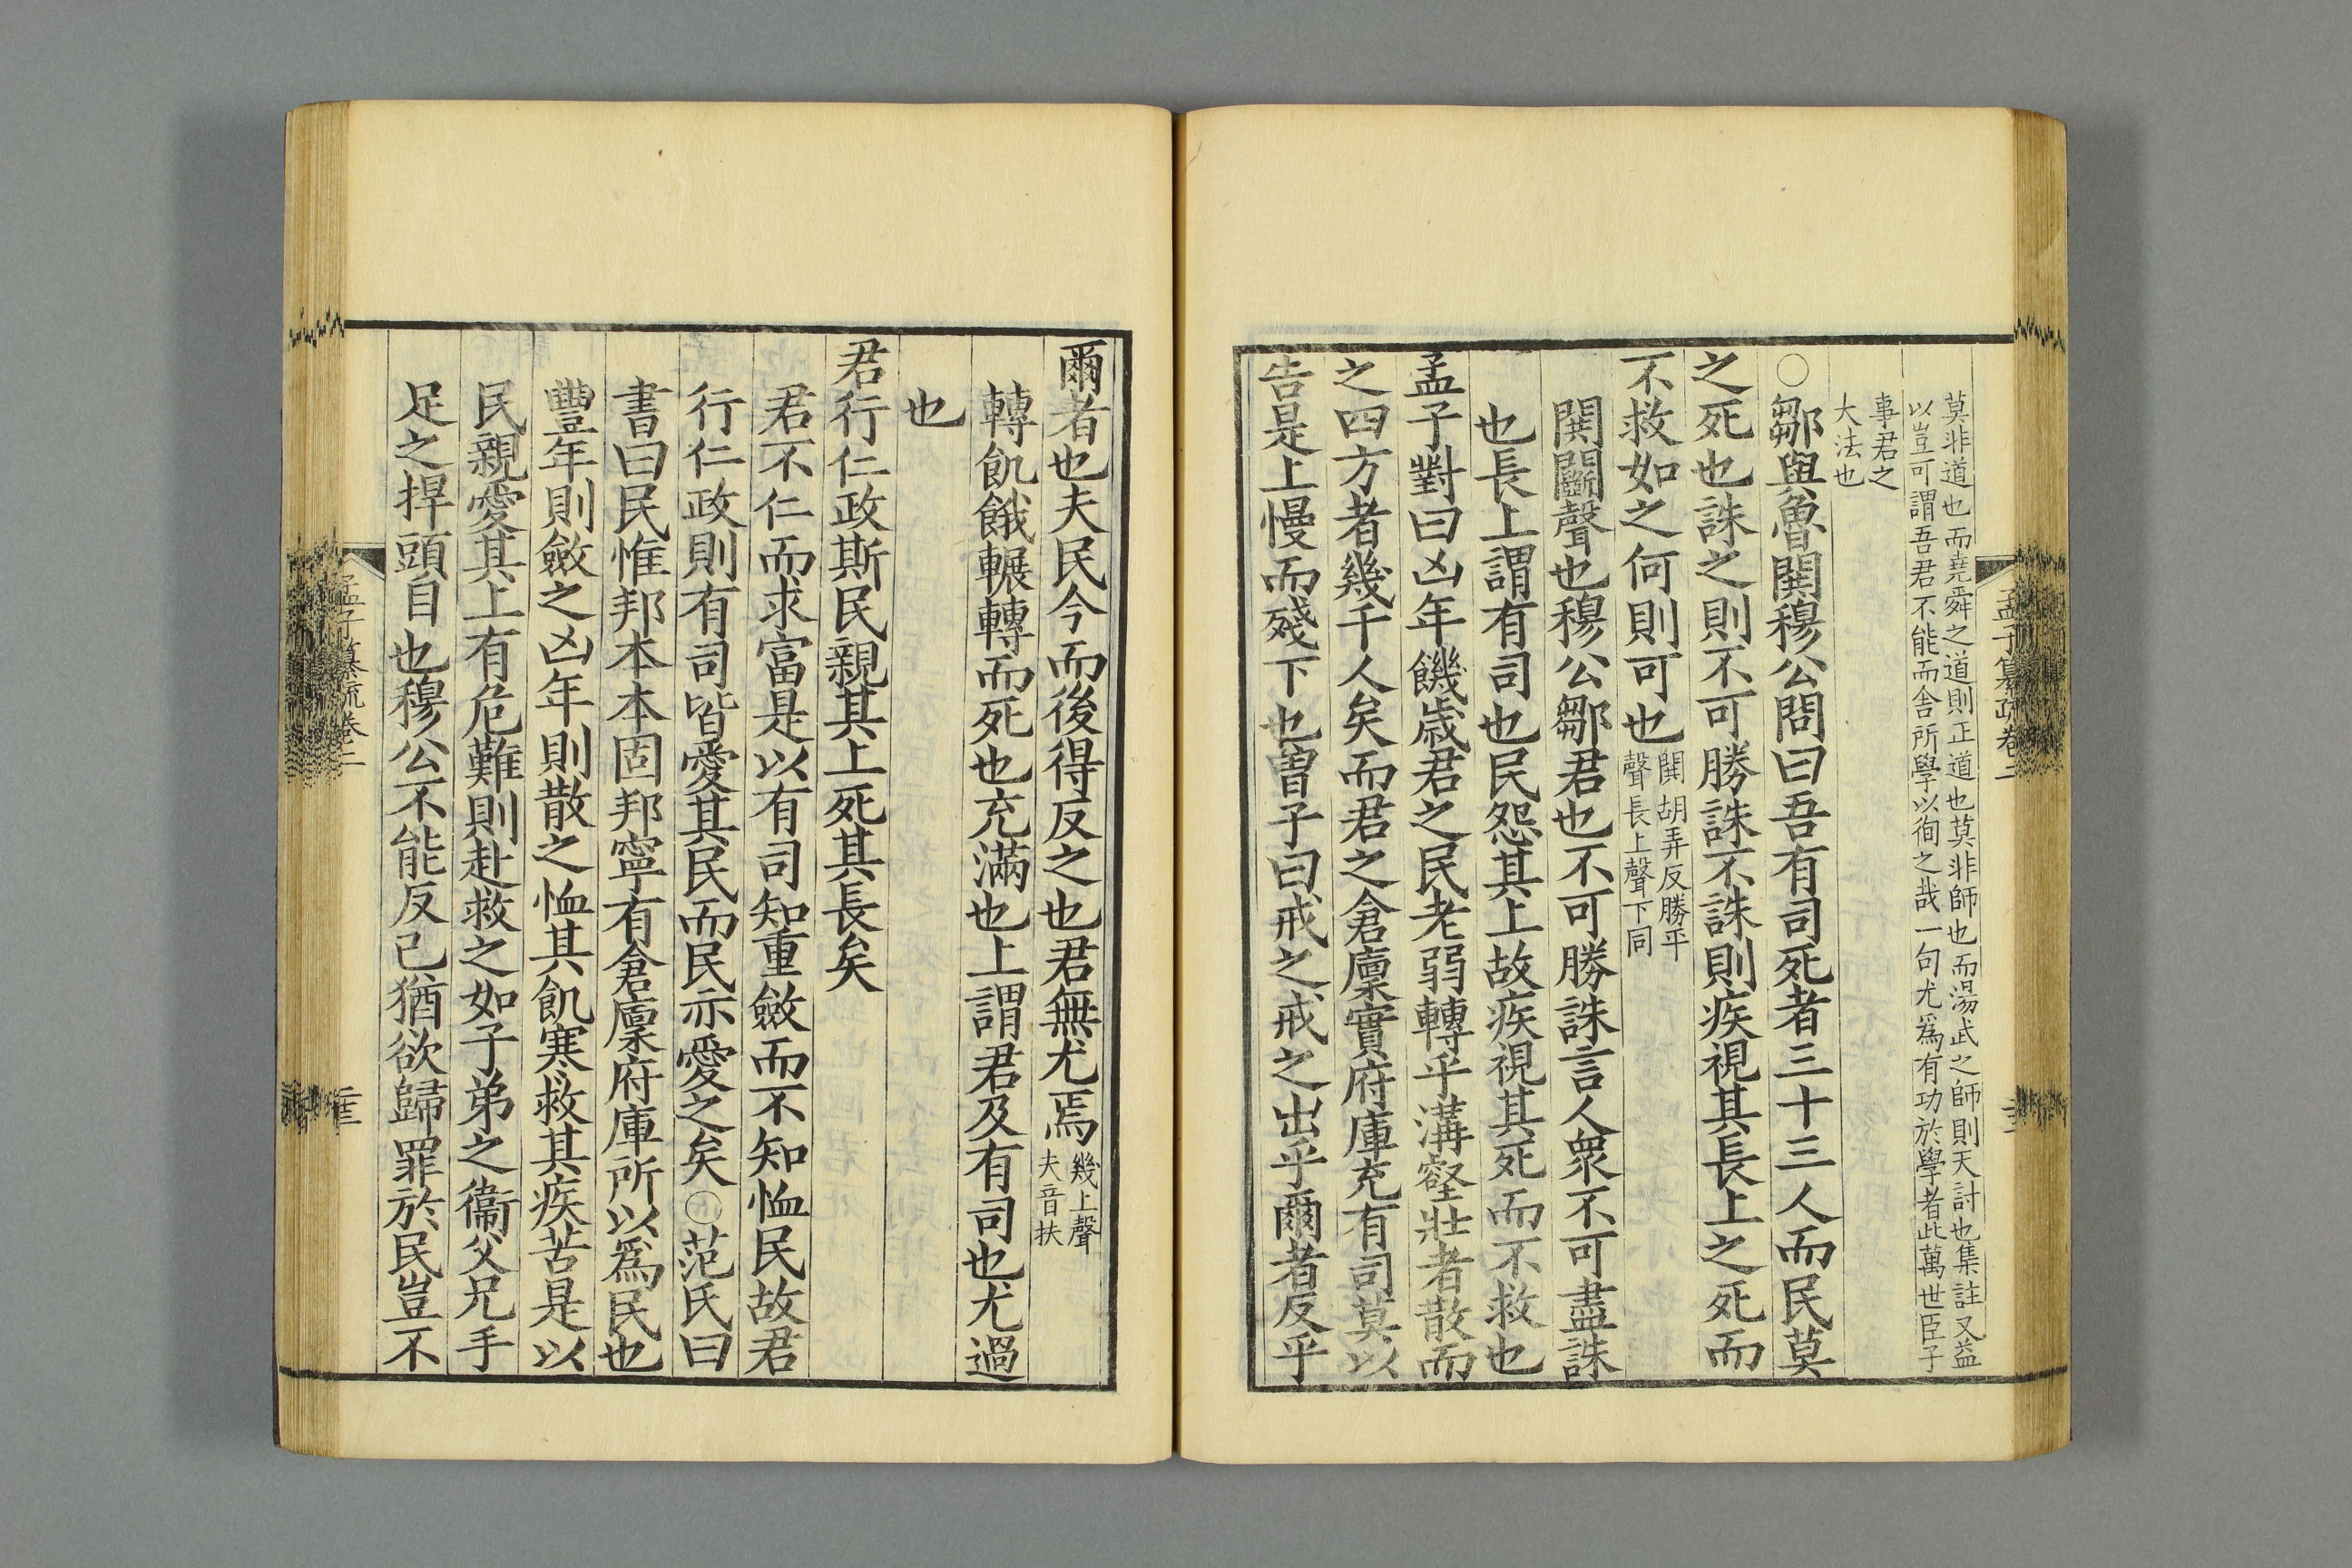 莫非道也而堯舜之道則正道也莫非師也而湯武之師則天討也集註又益
以豈可謂吾君不能而舍所學以徇之哉一句尤爲有功於學者此萬世臣子
事君之
大法也
○鄒與魯鬨穆公問曰吾有司死者三十三人而民莫
之死也誅之則不可勝誅不誅則疾視其長上之死而
不救如之何則可也
鬨胡弄反勝平
聲長上聲下同
鬨鬭聲也穆公鄒君也不可勝誅言人衆不可盡誅
也長上謂有司也民怨其上故疾視其死而不救也
孟子對曰凶年饑歲君之民老弱轉乎溝壑壯者散而
之四方者幾千人矣而君之倉廩實府庫充有司莫以
告是上慢而殘下也曾子曰戒之戒之出乎爾者反乎
孟子纂疏卷二
爾者也夫民今而後得反之也君無尤焉
幾上聲
夫音扶
轉飢餓輾轉而死也充滿也上謂君及有司也尤過
也
君行仁政斯民親其上死其長矣
君不仁而求富是以有司知重斂而不知恤民故君
行仁政則有司皆愛其民而民亦愛之矣○范氏曰
書曰民惟邦本本固邦寧有倉廩府庫所以爲民也
豐年則斂之凶年則散之恤其飢寒救其疾苦是以
民親愛其上有危難則赴救之如子弟之衞父兄手
足之捍頭目也穆公不能反己猶欲歸罪於民豈不
孟子纂疏卷二